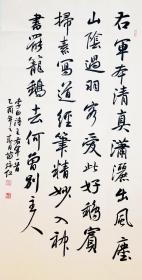 右軍本清真瀟灑出風塵
山陰過羽客愛此好鵝賓
掃素寫道經筆精妙入神
書罷籠鵝去何曾別主人
李白詩王右軍一首
乙酉年